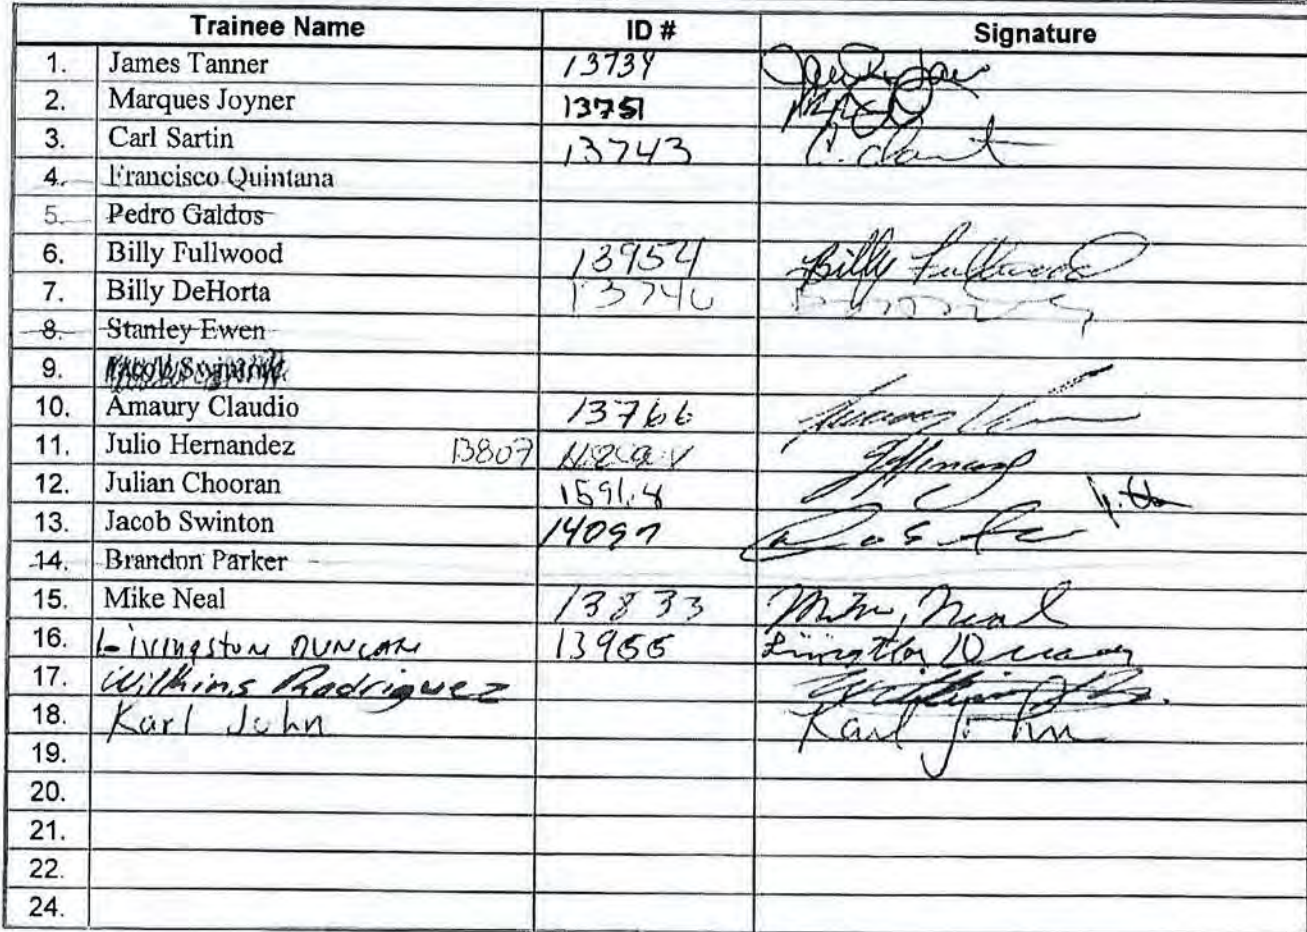 Trainee Name ID # Signature
1. James Tanner 13739
2. Marques Joyner 13751
3. Carl Sartin 13743
4. Francisco Quintana
5. Pedro Galdos
6. Billy Fullwood 13954 Billy Fullwood
7. Billy DeHorta 13740
8. Stanley Ewen
9.
10. Amaury Claudio 13766
11. Julio Hernandez 13807
12. Julian Chooran
13. Jacob Swinton 14097
14. Brandon Parker
15. Mike Neal 13833 Mike Neal
16. Livingston DUNCAN 13955 Livingston Duncan
17. Wilkins Rodriguez
18. Karl John Karl John
19.
20.
21.
22.
24.